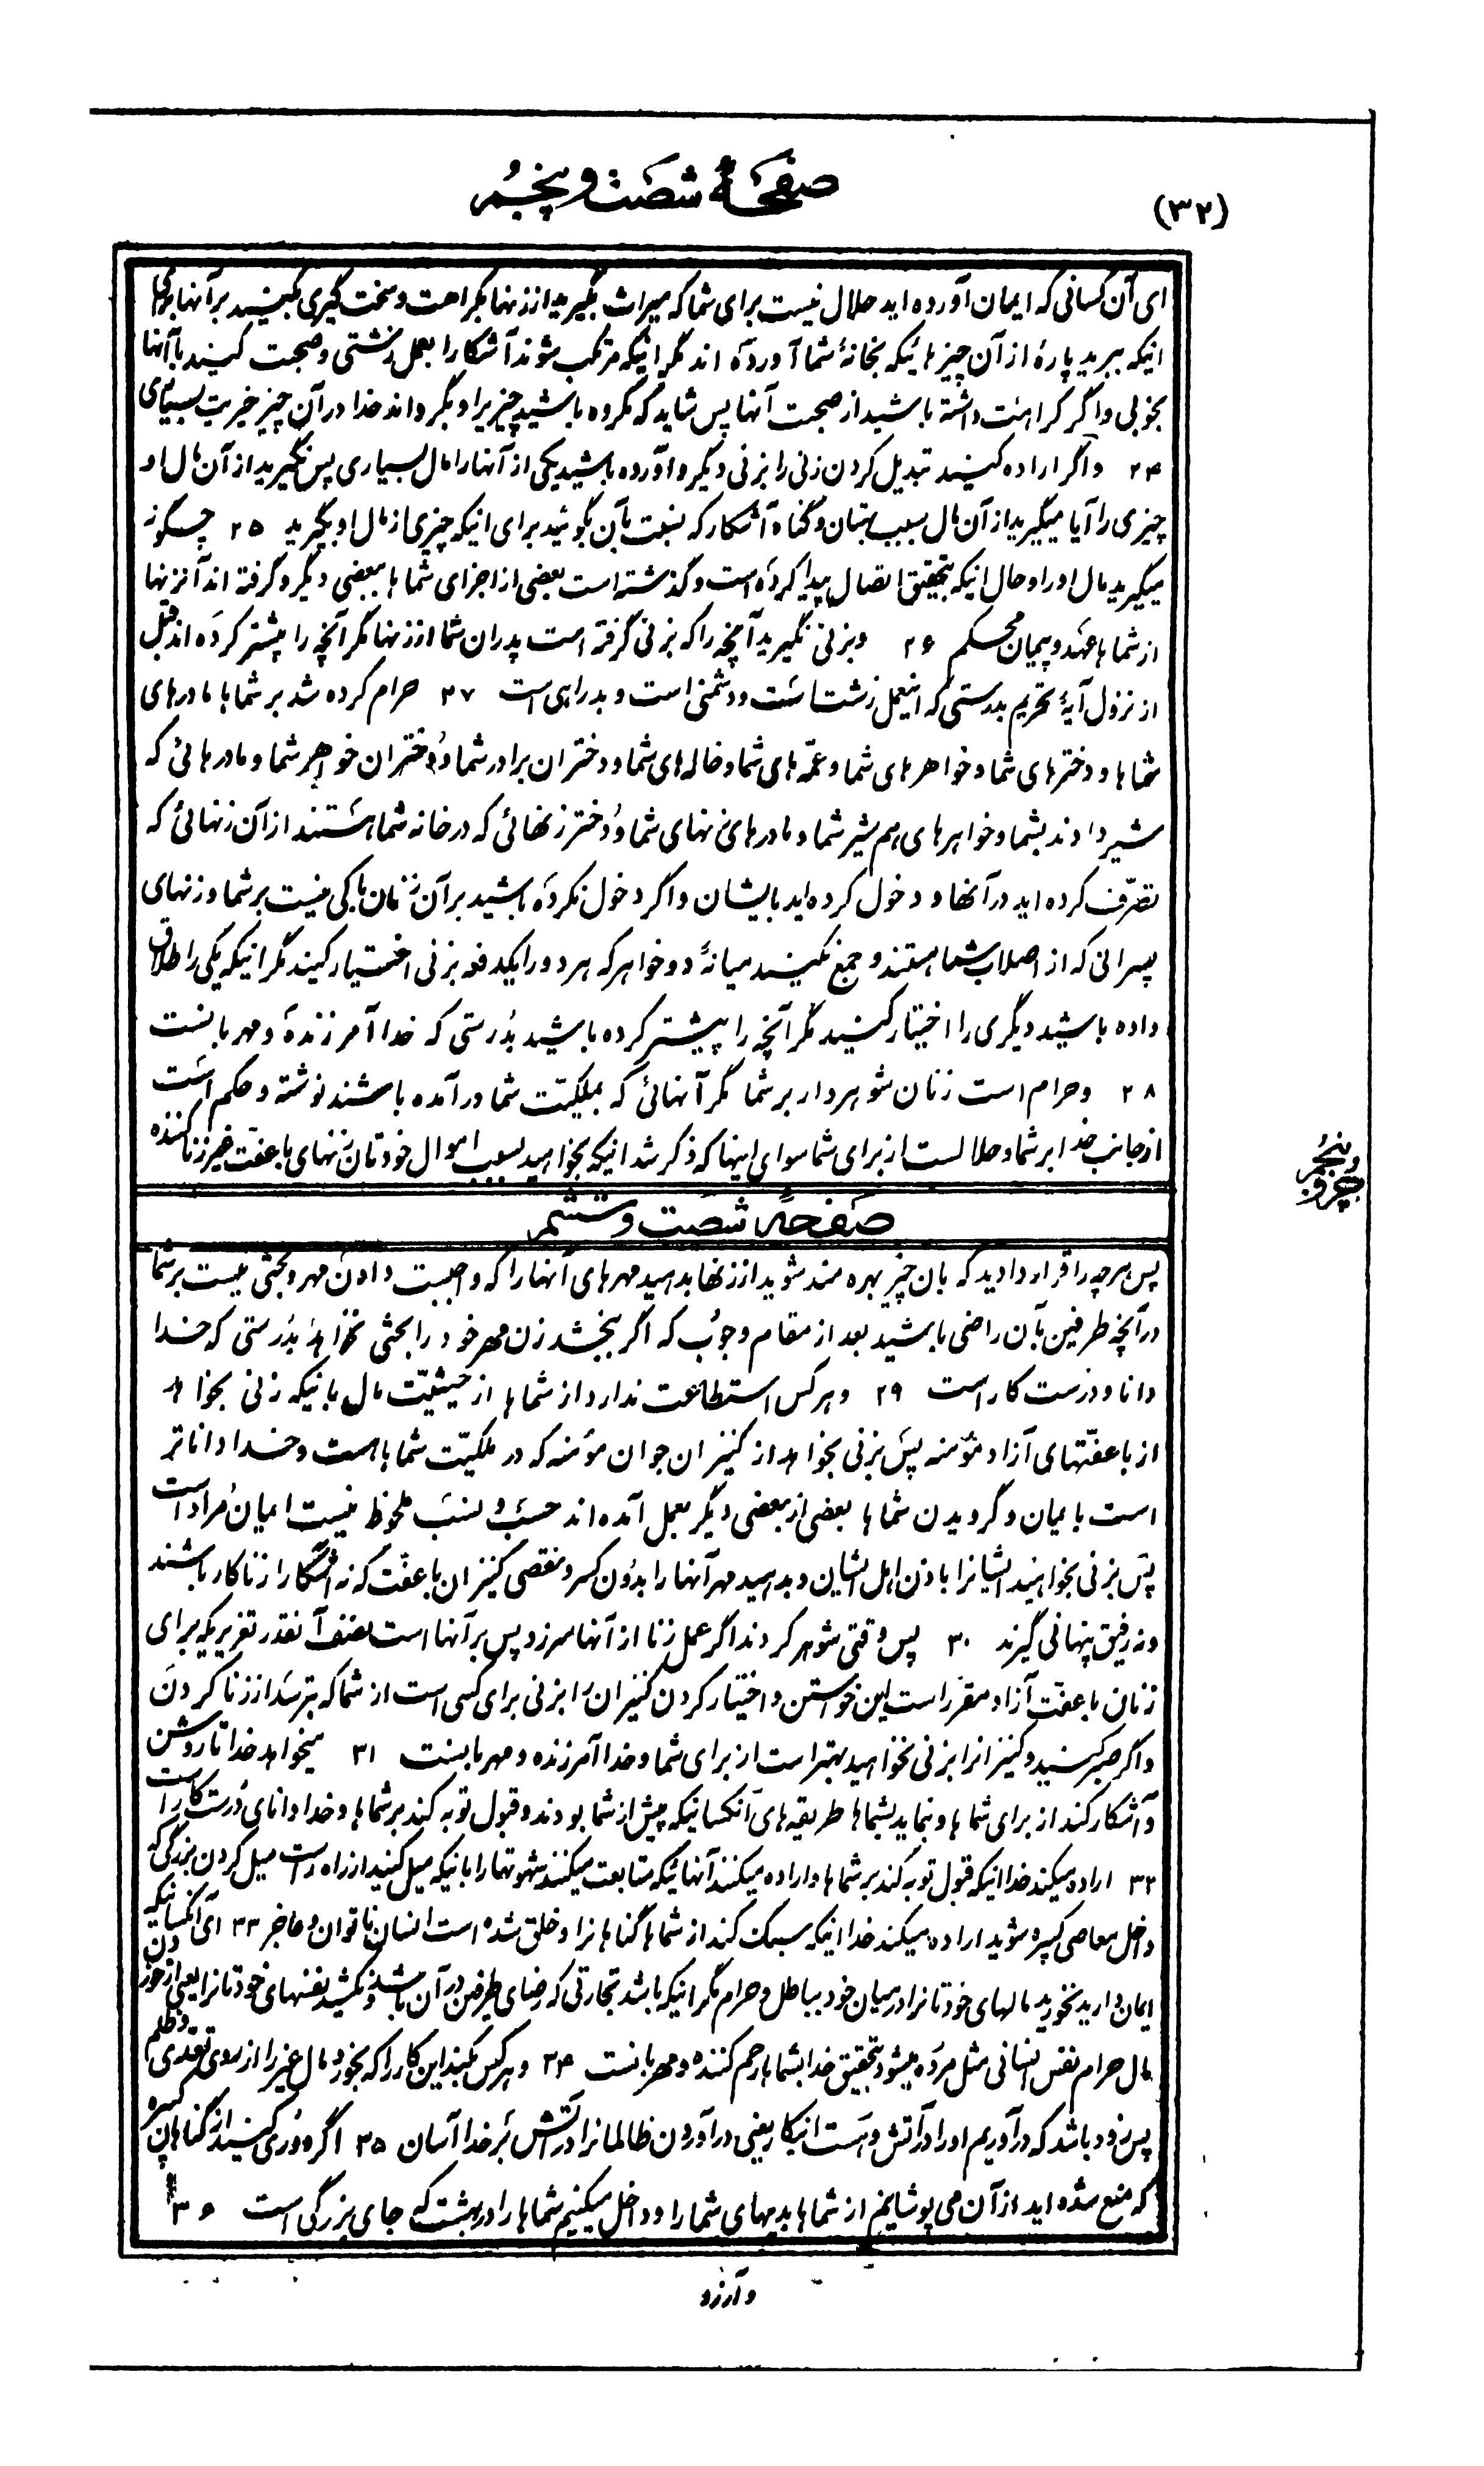 (۳۲)
صفحهٔ شصت و پنجم
ای آن کسانی که ایمان آورده اید حلال نیست برای شما که میراث بگیرید از زنها بکراهت و سخت گیری نکنید بر آنها برای
انیکه ببرید پارهٔ از آن چیزهائیکه بخانهٔ شما آورده اند مگر انیکه مرتکب شوند آشکارا بعمل زشتی و صحبت کنید با آنها
بخوبی و اگر کراهت داشته باشید از صحبت آنها پس شاید که مکروه باشید چیزیرا و بگرداند خدا در آن چیز خیریت بسیاری
۲۴ و اگر اراده کنید تبدیل کردن زنی را بزنی دیگر و آورده باشید یکی از آنها را مال بسیاری پس نگیرید از آن مال او
چیزی را آیا میگیرید از آن مال بسبب بهتان و گناه آشکار که نسبت بآن بگوئید برای انیکه چیزی از مال او بگیرید ۲۵ چگونه
میگیرید مال او را و حال انیکه بتحقیق اتصال پیدا کرده است و گذشته است بعضی از اجزای شما ها ببعضی دیگر و گرفته اند آنزنها
از شما ها عهد و پیمان محکم ۲۶ و بزنی نگیرید آنچه را که بزنی گرفته است پدران شما از زنها مگر آنچه را پیشتر کرده اند قبل
از نزول آیهٔ تحریم بدرستی که اینعمل زشتا ست و دشمنی است و بد راهی است ۲۷ حرام کرده شد بر شما ها مادرهای
شما ها و دخترهای شما و خواهرهای شما و عمّه های شما و خاله های شما و دختران برادر شما و دختران خواهر شما و مادرهائی که
شیر دادند بشما و خواهرهای هم شیر شما و مادرهای زنهای شما و دختر زنهائی که در خانه شما هستند از آن زنهائی که
تصرّف کرده اید در آنها و دخول کرده اید بایشان و اگر دخول نکرده باشید بر آن زنان باکی نیست بر شما و زنهای
پسرانی که از اصلاب شما هستند و جمع نکنید میانهٔ دو خواهر که هر دو را یکدفعه بزنی اختیار کنید مگر انیکه یکی را طلاق
داده باشید دیگری را اختیار کنید مگر آنچه را پیشتر کرده باشید بدرستی که خدا آمرزندهٔ و مهربانست
۲۸ و حرام است زنان شوهردار بر شما مگر آنهائی که بملکیّت شما در آمده باشند نوشته و حکم است
از جانب خدا بر شما و حلالست از برای شما سوای اینها که ذکر شد انیکه بخواهید بسبب اموال خودتان زنهای با عفّت غیر زنا کننده
صفحهٔ شصت و ششم
پس هرچه را قرار دادید که بان چیز بهره مند شوید از زنها بدهید مهرهای آنها را که واجبست دادن مهر و بحثی نیست بر شما
در آنچه طرفین بآن راضی باشید بعد از مقام وجوب که اگر ببخشد زن مهر خود را بحثی نخواهد بدرستی که خدا
دانا و درست کار است ۲۹ و هر کس استطاعت ندارد از شما ها از حیثیّت مال بانیکه زنی بخواهد
از با عفّتهای آزاد مؤمنه پس بزنی بخواهد از کنیزان جوان مؤمنه که در ملکیّت شما ها است و خدا داناتر
است بایمان و گرویدن شما ها بعضی از بعضی دیگر بعمل آمده اند حسب و نسب ملحوظ نیست ایمان مراد است
پس بزنی بخواهید ایشانرا باذن اهل ایشان و بدهید مهر آنها را بدون کسر و نقصی کنیزان با عفّت که نه آشکارا زناکار باشند
و نه رفیق پنهانی گیرند ۳۰ پس وقتی شوهر کردند اگر عمل زنا از آنها سرزد پس بر آنها است نصف آنقدر تعزیریکه برای
زنان با عفّت آزاد مقرّر است این خواستن و اختیار کردن کنیزان را بزنی برای کسی است از شما که بترسد از زنا کردن
و اگر صبر کنید و کنیزانرا بزنی نخواهید بهتر است از برای شما و خدا آمرزنده و مهربانست ۳۱ میخواهد خدا تا روشن
و آشکار کند از برای شما ها و بنماید بشما ها طریقه های آنکسانیکه پیش از شما بودند و قبول توبه کند بر شما ها و خدا دانای درست کار است
۳۲ اراده میکند خدا انیکه قبول توبه کند بر شما ها و اراده میکنند آنهائیکه متابعت میکنند شهوتها را بانیکه میل کنید از راه راست میل کردن بزرگی که
داخل معاصی کبیره شوید اراده میکند خدا انیکه سبک کند از شما ها گناهانرا و خلق شده است انسان ناتوان و عاجز ۳۳ ای آنکسانیکه
ایمان دارید نخورید مالهای خودتانرا در میان خود بباطل و حرام مگر انیکه باشد تجارتی که رضای طرفین در آن باشد و نکشید نفسهای خودتانرا یعنی از خوردن
مال حرام نفس انسانی مثل مرده میشود بتحقیق خدا بشما ها رحم کننده و مهربانست ۳۴ و هر کس بکند این کار را که بخورد مال غیر را از روی تعدی و ظلم
پس زود باشد که در آوریم او را در آتش و هست انیکار یعنی در آوردن ظالمانرا در آتش بر خدا آسان ۳۵ اگر دوری کنید از گناهان کبیره
که منع شده اید از آن می پوشانیم از شما ها بدیهای شما را و داخل میکنیم شما ها را در بهشت که جای بزرگی است ۳۶
و آرزو